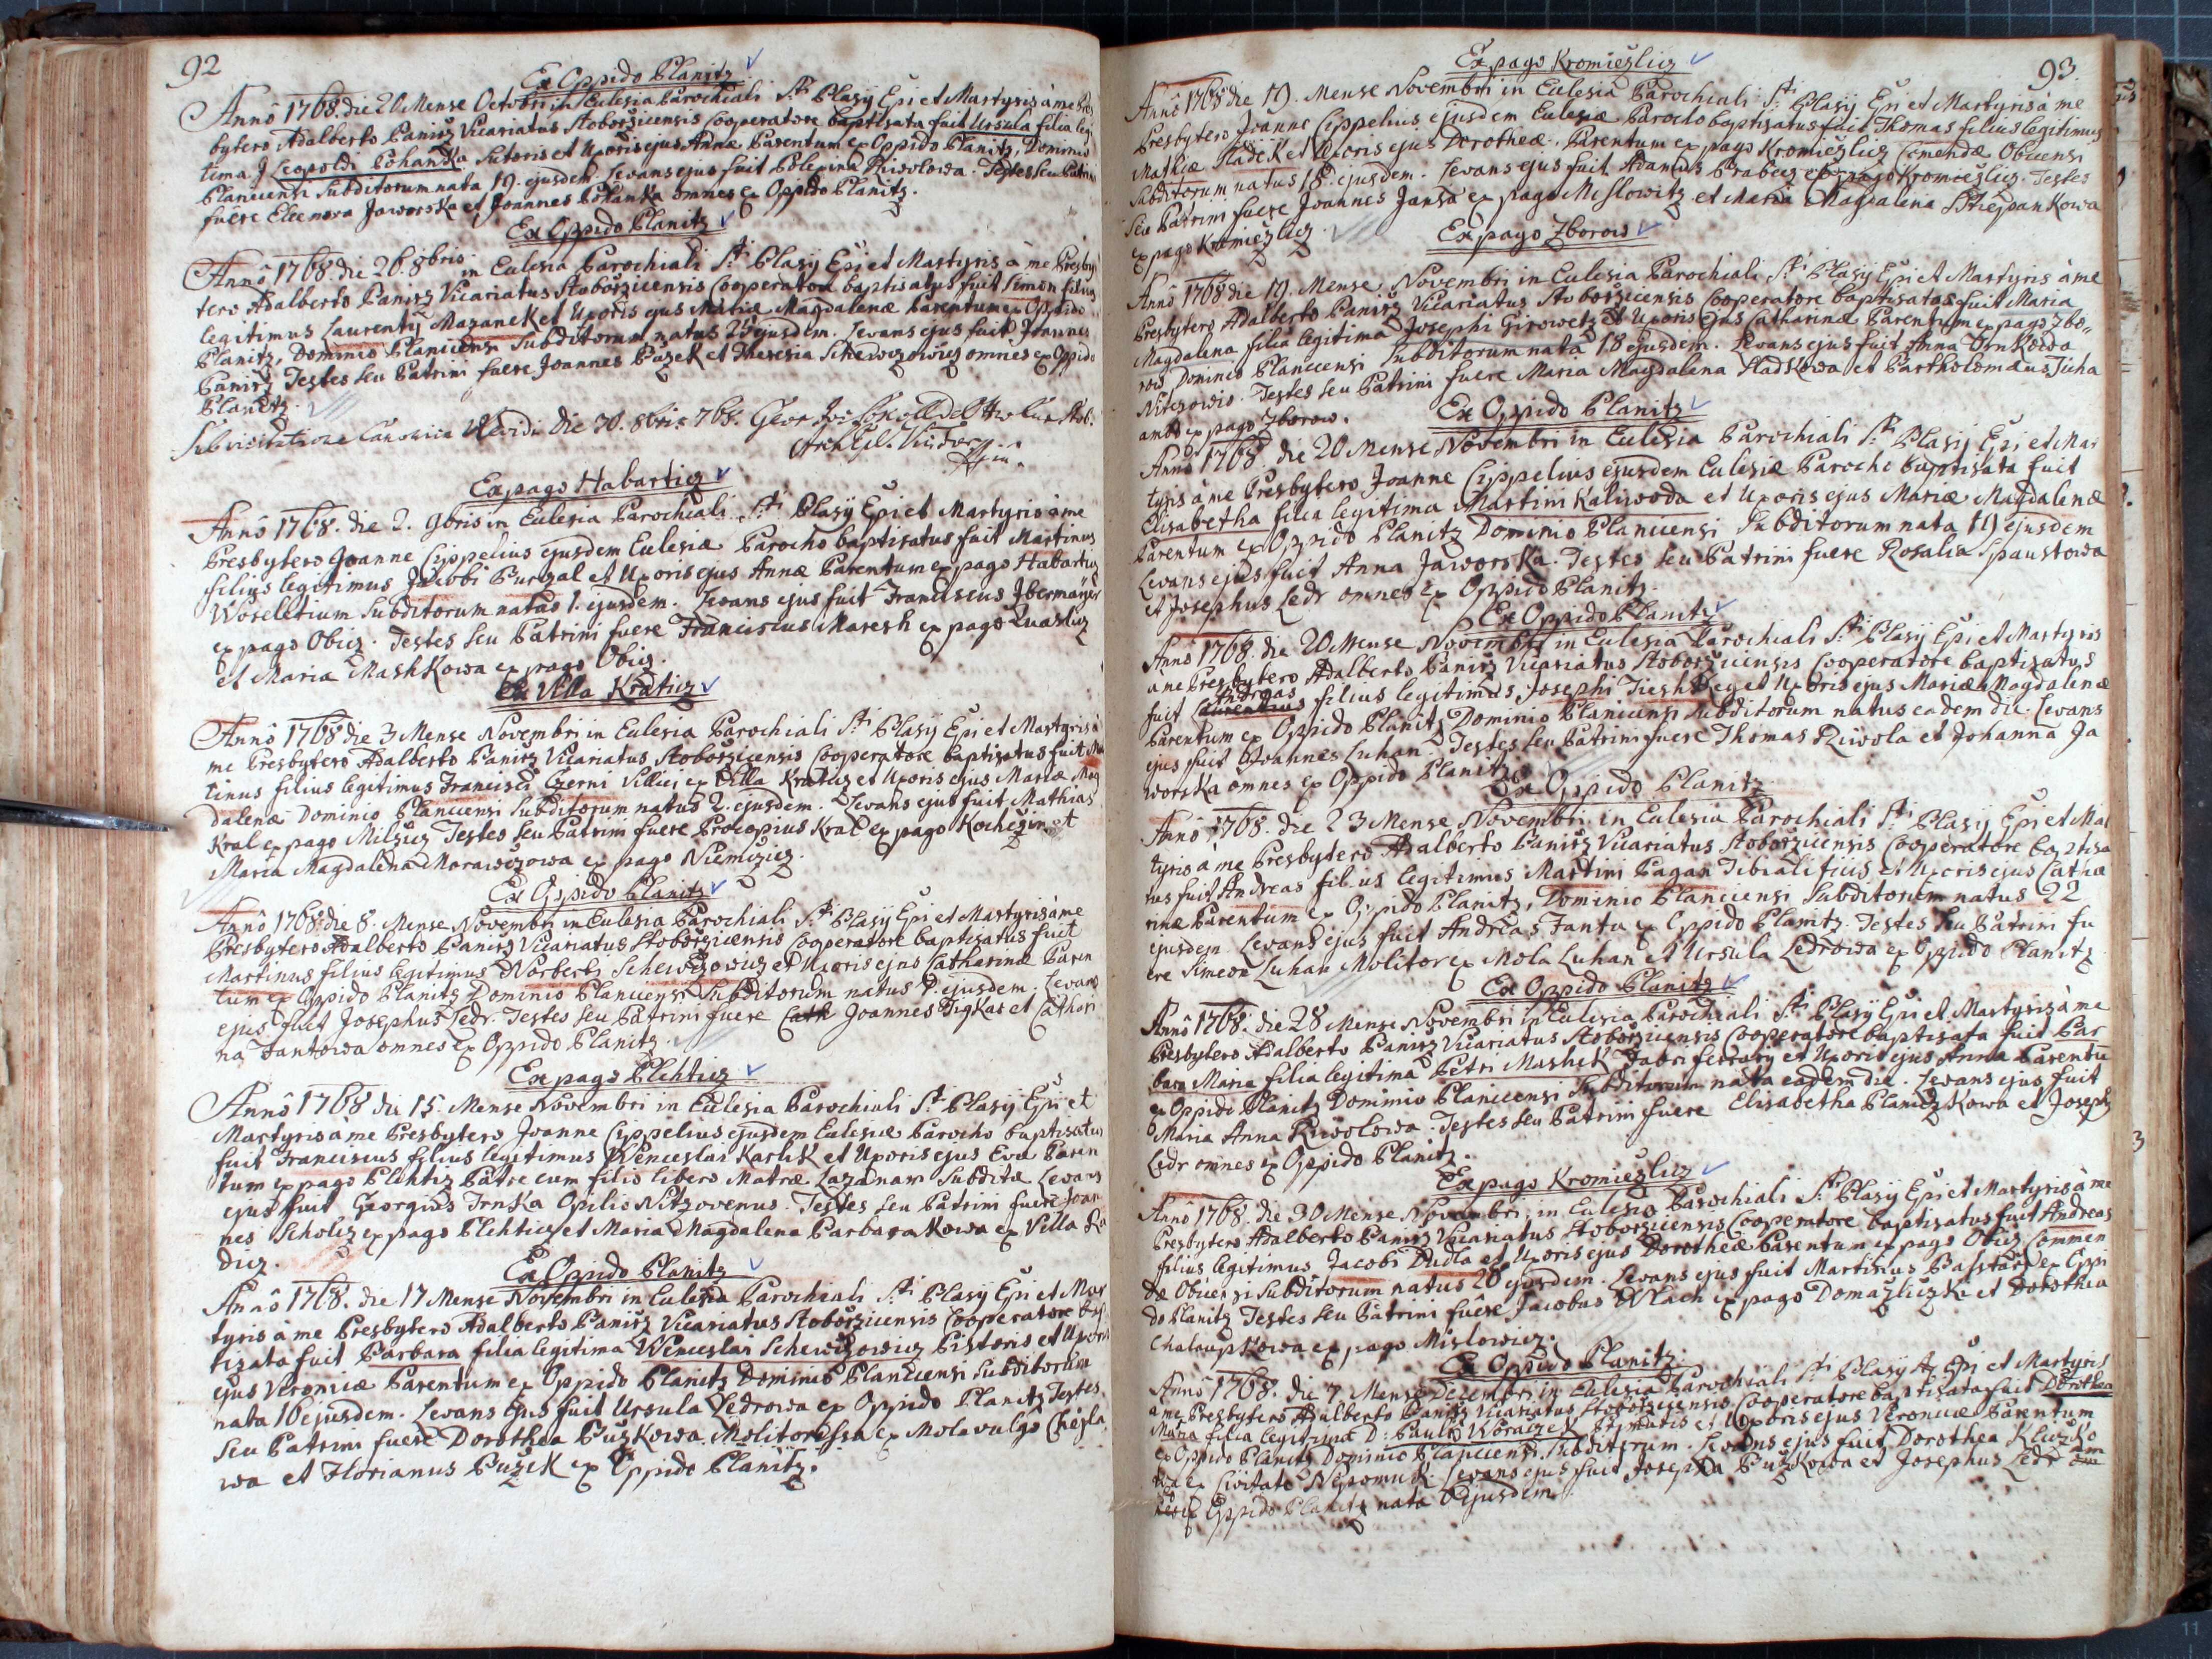 92
Ex Oppido Planitz
Annô 1768. die 20 Mense Octobri in Eclesia Parochiali Sti Plasij Epi et Martyris à me Pres
bytero Adalberto Panirz Vicariatus Stoborzicensis Cooperatore baptisata fuit Ursula filia legi
tima Leopoldi Pohanka Sutoris et Uxoris ejus Annæ Parentum ex Oppido Planitz, Dominio
Planicensi Subditorum nata 19. ejusdem. Levans ejus fuit Polexina Rziwolowa. Testes seu Patrini
fuêre Eleenora Jaworska et Joannes Pohanka omnes ex Oppido Planitz.
Ex Oppido Planitz
Annô 1768 die 26. 8bris in Eclesia Parochiali Sti Plasij Epi et Martyris à me Presby
tero Adalberto Panirz Vicariatus Stoborzicensis Cooperatore baptisatus fuit Simon filius
legitimus Laurentij Mazanek et Uxoris ejus Mariæ Magdalenæ Parentum ex Oppido
Planitz, Dominio Planicensi Subditorum natus 25 ejusdem. Levans ejus fuit Joannes
Panirz Testes seu Patrini fuere Joannes Puzek et Theresia Schewczowicz omnes ex Oppido
Planitz.
Sub visitatione Canonica Revidi die 30. 8bris 768.
Ex pago Habarticz
Annô 1768. die 2. 9bris in Eclesia Parochiali Sti Plasij Epi et Martyris à me
Presbytero Joanne Cippelius ejusdem Eclesiæ Parocho baptisatus fuit Martinus
filius legitimus Jacobi Purgal et Uxoris ejus Annæ Parentum ex pago Habarticz
Woseletium Subditorum natus 1. ejusdem. Levans ejus fuit Franciscus Jbermajer
ex pago Obicz. Testes seu Patrini fuere Franciscus Maresh ex pago Kwaslicz
et Maria Mashkowa ex pago Obicz.
Ex Villa Kraticz
Annô 1768 die 3 Mense Novembri in Eclesia Parochiali Sti Plasij Epi et Martyris à
me Presbytero Adalberto Panirz Vicariatus Stoborzicensis Cooperatore baptisatus fuit Mar
tinus filius legitimus Francisci Czerni Villici ex Villa Kraticz et Uxoris ejus Mariæ Mag
dalenæ Dominio Planicensi Subditorum natus 2. ejusdem. Levans ejus fuit Mathias
Kral ex pago Milczicz Testes seu Patrini fuere Procopius Kral ex pago Kochczin et
Maria Magdalena Morawczowa ex pago Niemczicz.
Ex Oppido Planitz
Annô 1768. die 8. Mense Novembri in Eclesia Parochiali Sti Plasij Epi et Martyris à me
Presbytero Adalberto Panirz Vicariatus Stoborzicensis Cooperatore baptisatus fuit
Martinus filius legitimus Norberti Schewczowicz et Uxoris ejus Catharinæ Paren
tum ex Oppido Planitz Dominio Planicensi Subditorum natus 7. ejusdem. Levans
ejus fuit Josephus Ledr. Testes seu Patrini fuere Cath Joannes Figkar et Cathari
na Fantowa omnes ex Oppido Planitz.
Ex pago Plehticz
Annô 1768 die 15. Mense Novembri in Eclesia Parochiali Sti Plasij Epi et
Martyris à me Presbytero Joanne Cippelius ejusdem Eclesiæ Parocho baptisatus
fuit Franciscus filius legitimus Wenceslai Karlik et Uxoris ejus Evæ Paren
tum ex pago Plehticz Patre cum filio libero Matræ Lazanam Subditæ Levans
ejus fuit Georgius Trnka Opilio Nitzovenus. Testes seu Patrini fuere Joan
nes Scholcz ex pago Plehticz et Maria Magdalena Parbarakowa ex Villa Ra
dicz.
Ex Oppido Planitz
Annô 1768. die 17 Mense Novembri in Eclesia Parochiali Sti Plasij Epi et Mar
tyris à me Presbytero Adalberto Panirz Vicariatus Stoborzicensis Cooperatore bap
tizata fuit Parbara filia legitima Wenceslai Schewczowicz Pistoris et Uxoris
ejus Veronicæ Parentum ex Oppido Planitz Dominio Planicensi Subditorum
nata 16 ejusdem. Levans ejus fuit Ursula Ledrowa ex Oppido Planitz Testes
seu Patrini fuere Dorothea Puzkowa Molitorissa ex Mola vulgo Chejsla
wa et Florianus Puzek ex Oppido Planitz.
93.
Ex pago Kromiezlicz
Annô 1768 die 19. Mense Novembri in Eclesia Parochiali Sti Plasij Epi et Martyris à me
Presbytero Joanne Cippelius ejusdem Eclesiæ Parocho baptisatus fuit Thomas filius legitimus
Mathiæ Hladek et Uxoris ejus Dorotheæ. Parentum ex pago Kromiezlicz Comendæ Obicensi
Subditorum natus 18. ejusdem. Levans ejus fuit Adamus Brabecz ex pago Kromiezlicz. Testes
seu Patrini fuere Joannes Jansa ex pago Mislowitz et Maria Magdalena Sthiepankowa
ex pago Kromiezlicz.
Ex pago Zborow
Annô 1768 die 19. Mense Novembri in Eclesia Parochiali Sti Plasij Epi et Martyris à me
Presbytero Adalberto Panirz Vicariatus Stoborzicensis Cooperatore baptisatas fuit Maria
Magdalena filia legitima Josephi Girowetz et Uxoris ejus Catharinæ Parentum ex pago Zbo„
row Dominio Planicensi Subditorum nata 18 ejusdem. Levans ejus fuit Anna Trnkowa
Nitczowio. Testes seu Patrini fuere Maria Magdalena Hladkowa et Partholomæus Juha
ambo ex pago Zborow.
Ex Oppido Planitz
Annô 1768. die 20 Mense Novembri in Eclesia Parochiali Sti Plasij Epi et Mar
tyris à me Presbytero Joanne Cippelius ejusdem Eclesiæ Parocho baptisata fuit
Elisabetha filia legitima Martini Kaliwoda et Uxoris ejus Mariæ Magdalenæ
Parentum ex Oppido Planitz Dominio Planicensi Subditorum nata 19 ejusdem
Levans ejus fuit Anna Jaworska. Testes seu Patrini fuere Rosalia Spaustowa
et Josephus Ledr omnes ex Oppido Planitz.
Ex Oppido Planitz
Annô 1768. die 20 Mense Novembri in Eclesia Parochiali Sti Plasij Epi et Martyris
à me Presbytero Adalberto Panirz Vicariatus Stoborzicensis Cooperatore baptisatus
Andreas
fuit Laurentius filius legitimus Josephi Tieshkey et Uxoris ejus Mariæ Magdalenæ
Parentum ex Oppido Planitz Dominio Planicensi Subditorum natus eadem die. Levans
ejus fuit Joannes Luhan. Testes seu Patrini fuere Thomas Rziwola et Johanna Ja
worska omnes ex Oppido Planitz.
Ex Oppido Planitz
Annô 1768. die 23 Mense Novembri in Eclesia Parochiali Sti Plasij Epi et Mar
tyris à me Presbytero Adalberto Panirz Vicariatus Stoborzicensis Cooperatore baptisa
tus fuit Andreas filius legitimus Martini Pagan Tibialificis et Uxoris ejus Catha
rinæ Parentum ex Oppido Planitz, Dominio Planicensi Subditorum natus 22
ejusdem. Levans ejus fuit Andreas Fanta ex Oppido Planitz. Testes seu Patrini fu
ere Simeon Luhan Molitor ex Mola Luhan et Ursula Ledrowa ex Oppido Planitz.
Ex Oppido Planitz
Annô 1768. die 28 Mense Novembri in Eclesia Parochiali Sti Plasij Epi et Martyris à me
Presbytero Adalberto Panirz Vicariatus Stoborzicensis Cooperatore baptisata fuit Bar
bara Maria filia legitima Petri Mashek Fabri ferrarij et Uxoris ejus Annæ Parentū
ex Oppido Planitz Dominio Planicensi Subditorum nata eadem die. Levans ejus fuit
Maria Anna Rziwolowa. Testes seu Patrini fuere Elisabetha Planiczkowa et Joseph9
Ledr omnes ex Oppido Planitz.
Ex pago Kromiezlicz
Annô 1768. die 30 Mense Novembri in Eclesia Parochiali Sti Plasij Epi et Martyris à me
Presbytero Adalberto Panirz Vicariatus Stoborzicensis Cooperatore baptisatus fuit Andreas
filius legitimus Jacobi Dudla et Uxoris ejus Dorotheæ Parentum ex pago Obicz Commen
dæ Obicensi Subditorum natus 28 ejusdem. Levans ejus fuit Martinus Pastar ex Oppi
do Planitz Testes seu Patrini fuêre Jacobus Wlach ex pago Domazliczk et Dorothea
Chalaupkowa ex pago Mislowicz.
Ex Oppido Planitz.
Annô 1768. die 7 Mense Decembri in Eclesia Parochiali Sti Plasij Epi et Martyris
à me Presbytero Adalberto Panirz Vicariatus Stoborzicensis Cooperatore baptisata fuit Dorothea
Maria filia legitima D: Pauli Woraczek Primatis et Uxoris ejus Veronicæ Parentum
ex Oppido Planitz Dominio Planicensi Subditorum. Levans ejus fuit Dorothea Kliczko
wa ex Civitate Nepomuk. Levans ejus fuit Josepha Puzkowa et Josephus Ledr am
bo ex Oppido Planitz nata 6 ejusdem.